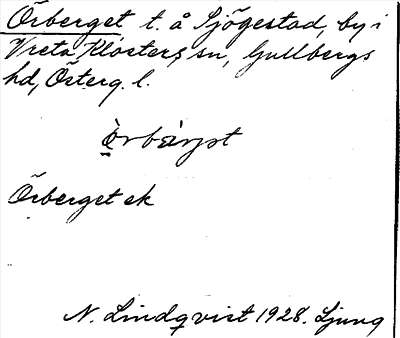 Örberget t. å Sjögestad, by i
Vreta Klosters sn, Gullbergs
hd, Österg. l.
Örberget ek
N. Lindqvist 1928. Ljung